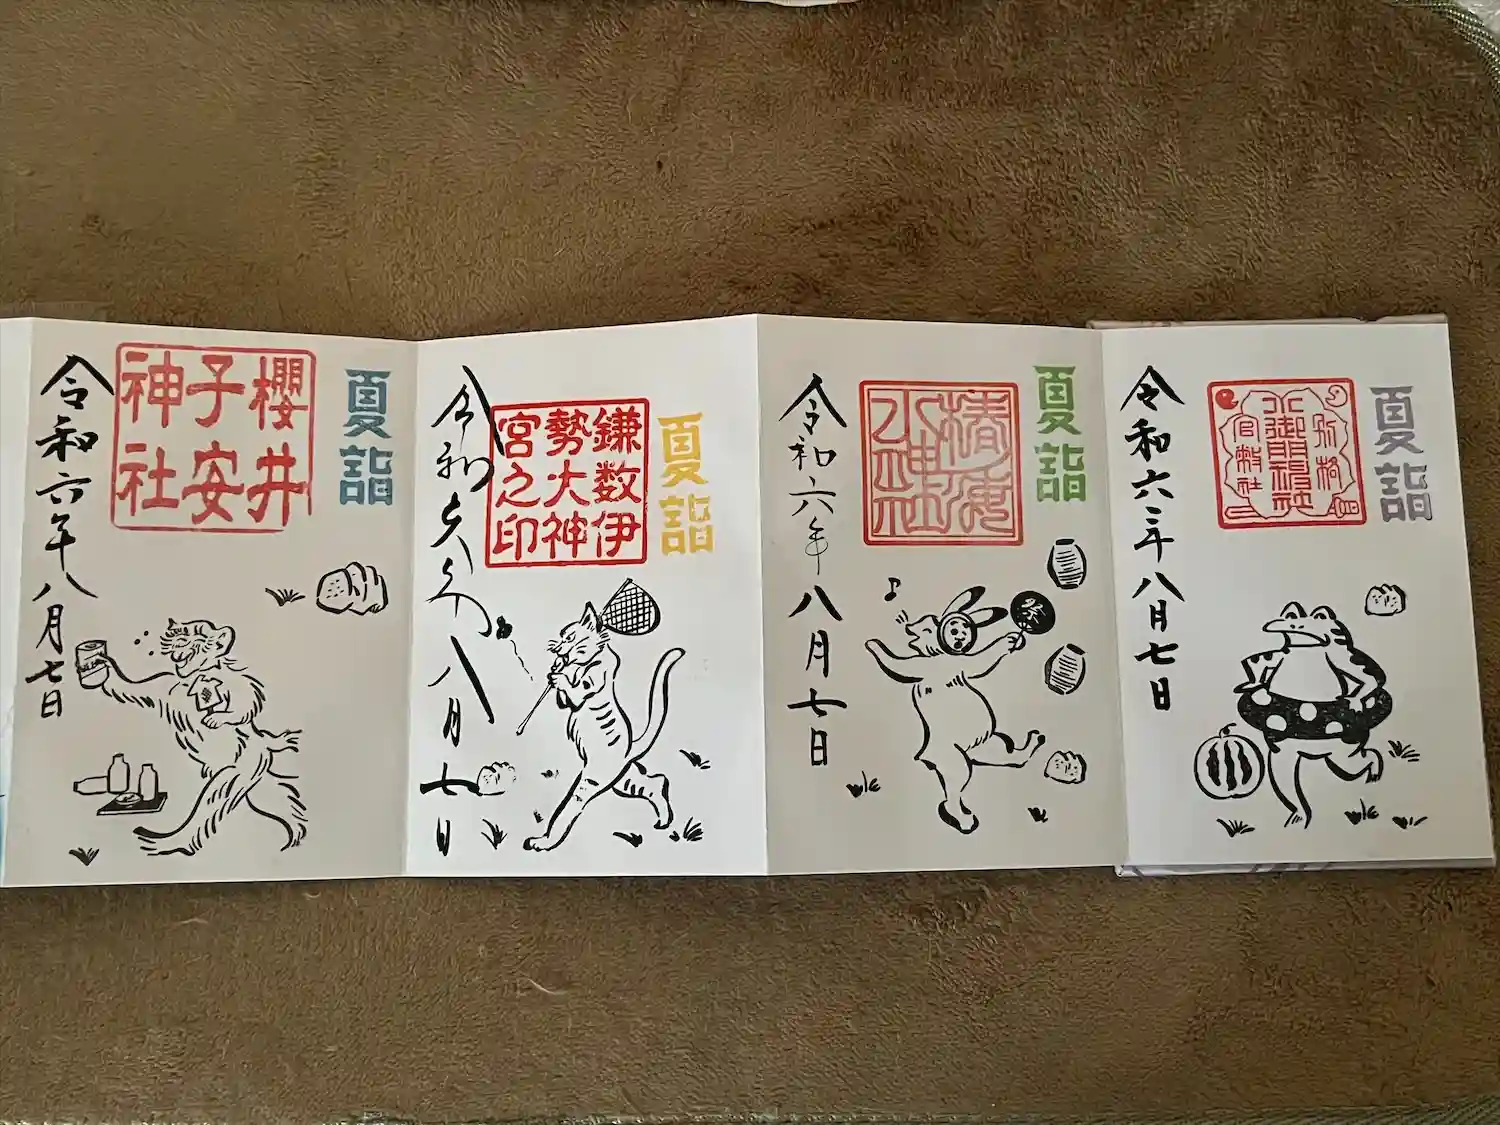 夏詣
令和六年八月七日
夏詣
椿海
水神社
祭
令和六年八月七日
夏詣
鎌数伊
勢大神
宮之印
令和六年八月七日
夏詣
櫻井
子安
神社
令和六年八月七日